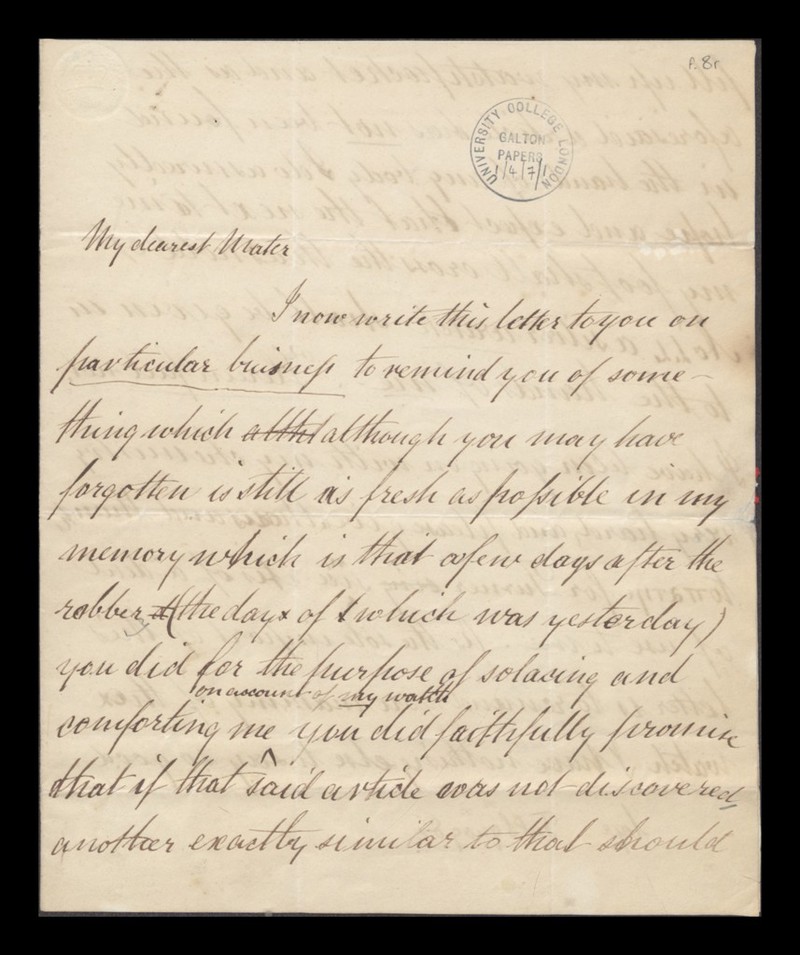 P. 8r
UNIVERSITY COLLEGE LONDON
GALTON
PAPERS
1/4/7/1
My dearest Mater
I now write this letter to you on
particular buisness to remind you of some-
thing which alth although you may have
forgotten is still as fresh as possible in my
memory which is that a few days after the
robbery (the day of which was yesterday)
you did for the purpose of solacing and
on account of my watch
comforting me you did faithfully promise
that if that said article was not discovered,
another exactly similar to that should